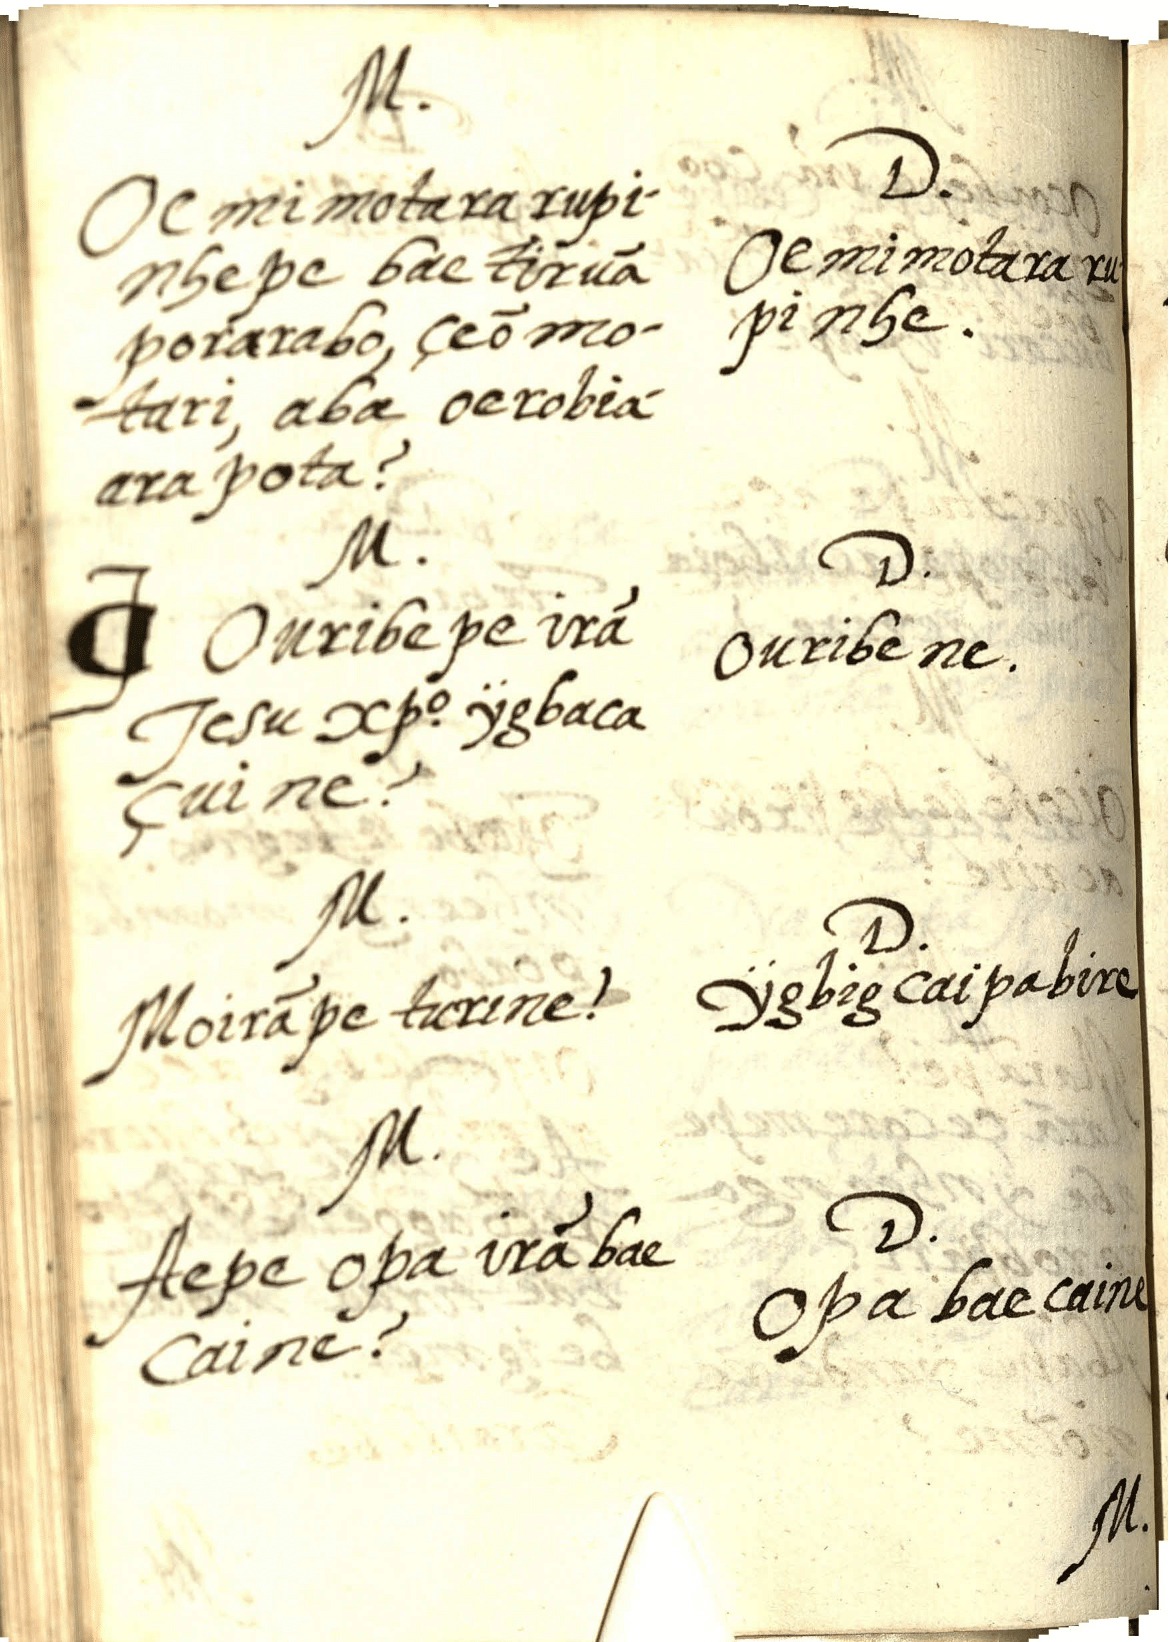 M.
Oemimotara rupi-
nhepe bae tiruã
porarabo, çeõ mo-
tari, aba oerobia-
ara pota?
D.
Oemimotara ru-
pi nhe.
M.
¶ Ouribe pe irã
Jesu xpº. ÿgbaca
çui ne?
D.
Ouribe ne.
M.
Moirãpe turine?
D.
Ÿgbig cai pabire
M.
Aepe opa irã bae
caine?
D.
Opa bae caine
M.